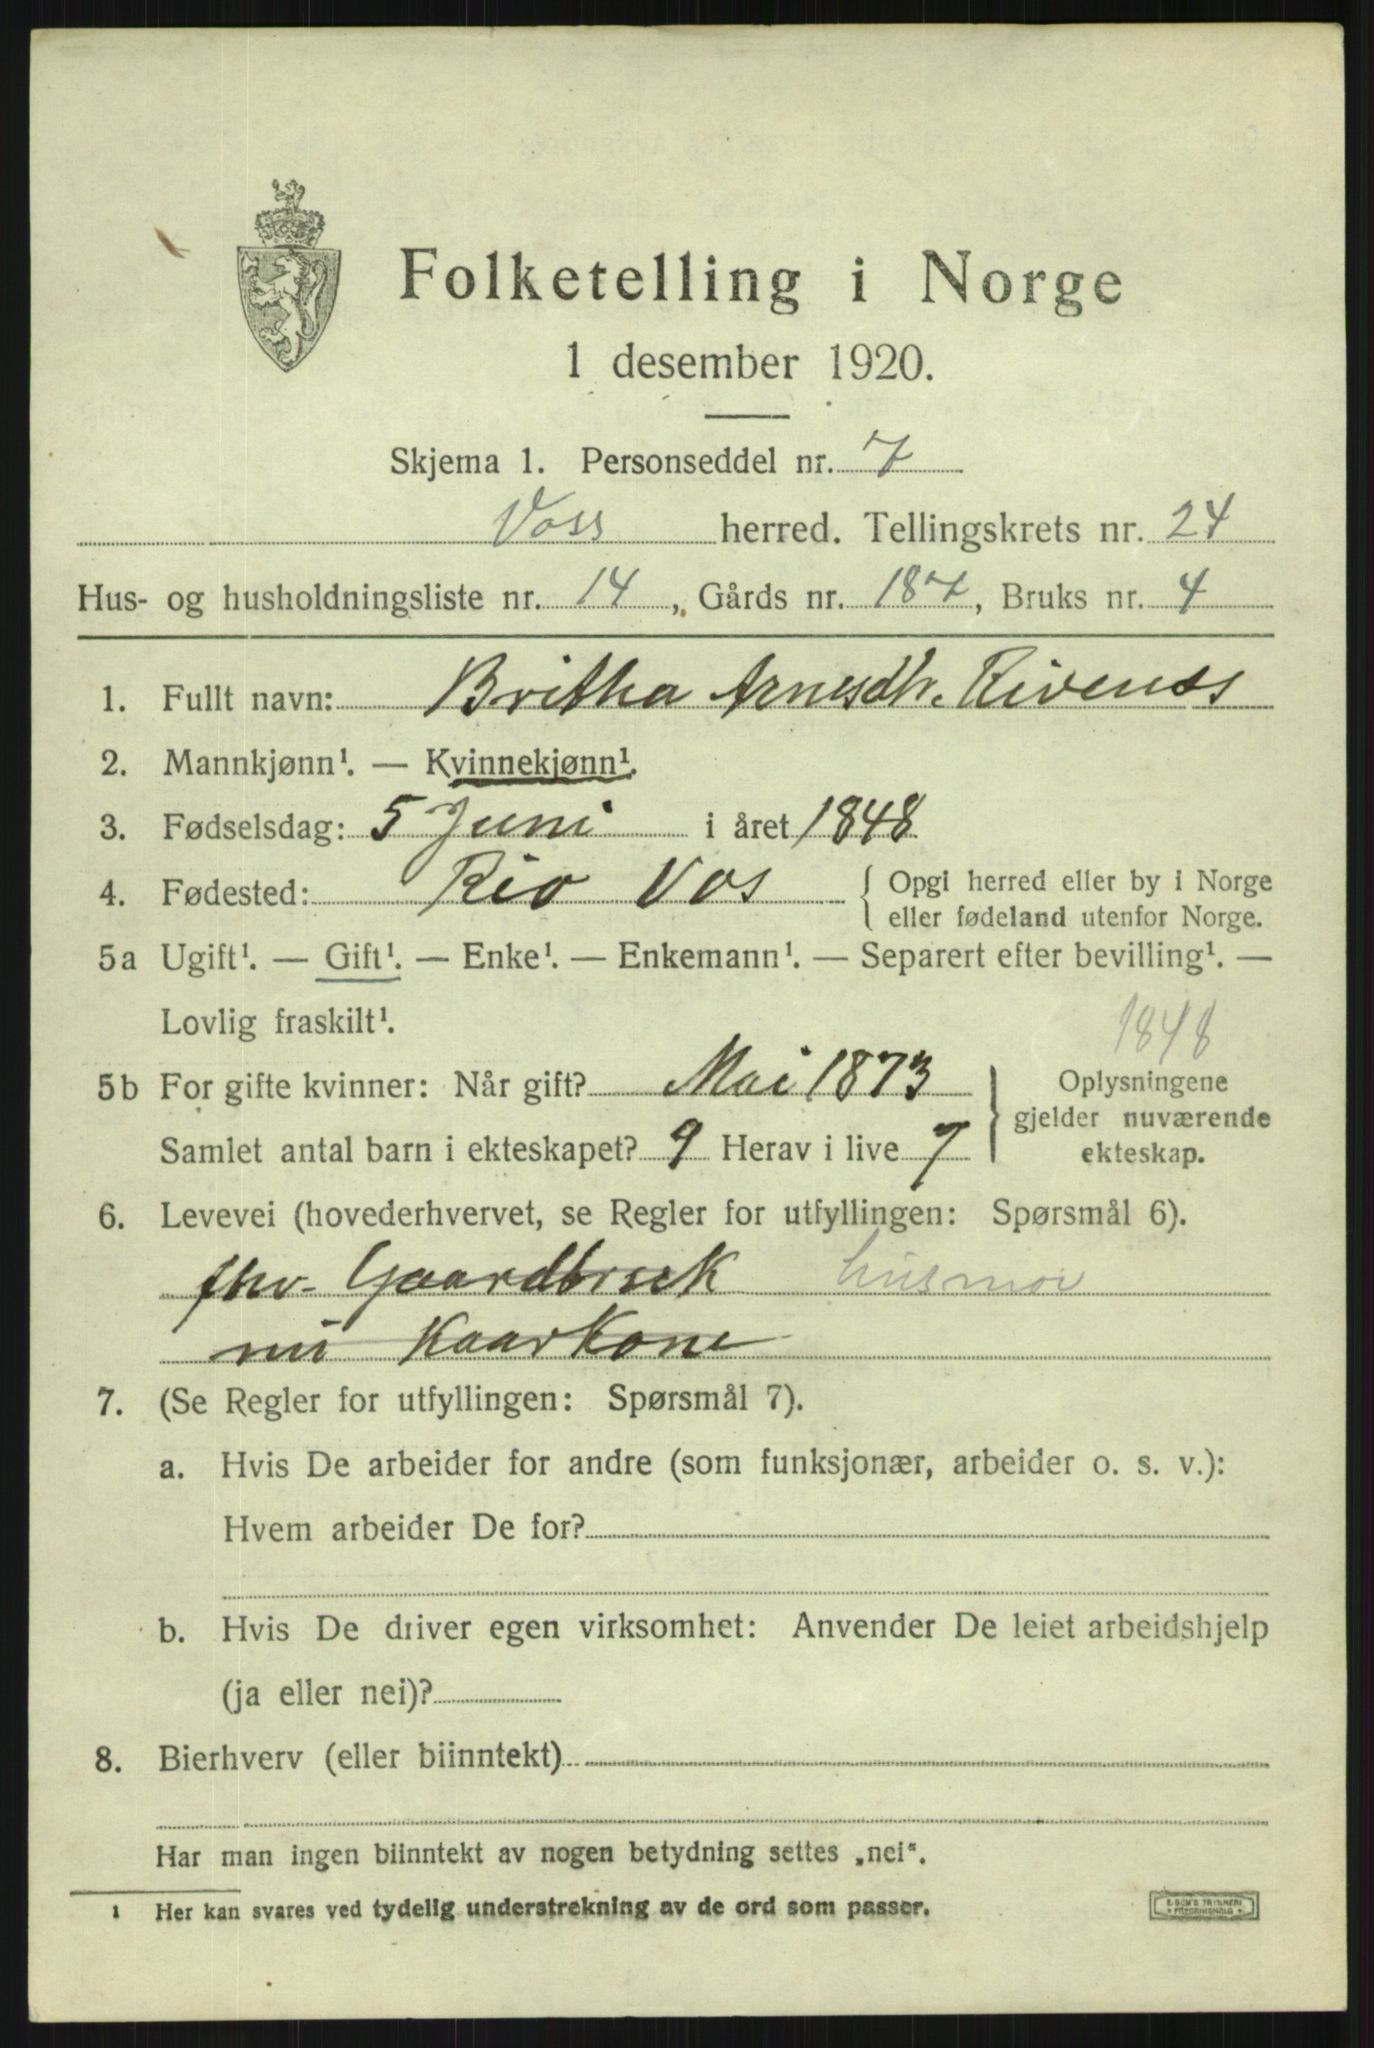 Folketelling i Norge
1 desember 1920.
Skjema 1. Personseddel nr. 7
Voss herred. Tellingskrets nr. 24
Hus- og husholdningsliste nr. 14, Gårds nr. 187, Bruks nr. 4
1. Fullt navn: Britha Arnesdtr. Rivenes
2. Mannkjønn¹. — Kvinnekjønn¹.
3. Fødselsdag: 5 Juni i året 1848
4. Fødested: Rio Vos { Opgi herred eller by i Norge
eller fødeland utenfor Norge.
5a Ugift¹. — Gift¹. — Enke¹. — Enkemann¹. — Separert efter bevilling¹. —
Lovlig fraskilt¹.
1848
5b For gifte kvinner: Når gift? Mai 1873
Samlet antal barn i ekteskapet? 9 Herav i live 7
} Oplysningene
gjelder nuværende
ekteskap.
6. Levevei (hovederhvervet, se Regler for utfyllingen: Spørsmål 6).
fhv. Gaardbruk husmor
nu Kaarkone
7. (Se Regler for utfyllingen: Spørsmål 7).
a. Hvis De arbeider for andre (som funksjonær, arbeider o. s. v.):
Hvem arbeider De for?
b. Hvis De driver egen virksomhet: Anvender De leiet arbeidshjelp
(ja eller nei)?
8. Bierhverv (eller biinntekt)
Har man ingen biinntekt av nogen betydning settes „nei“.
1 Her kan svares ved tydelig understrekning av de ord som passer.